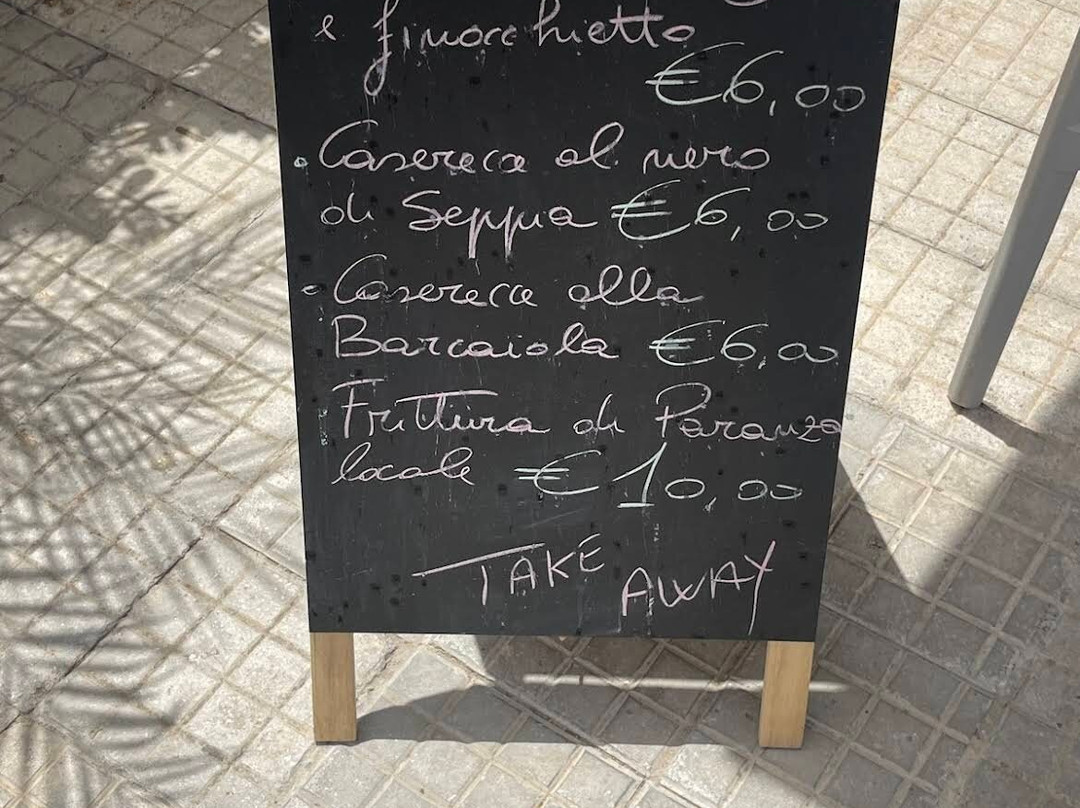 e finocchietto
€6,00
• Caserecce al nero
di Seppia €6,00
- Caserecce alla
Barcaiola €6,00
Frittura di Paranza
locale €10,00
TAKE AWAY